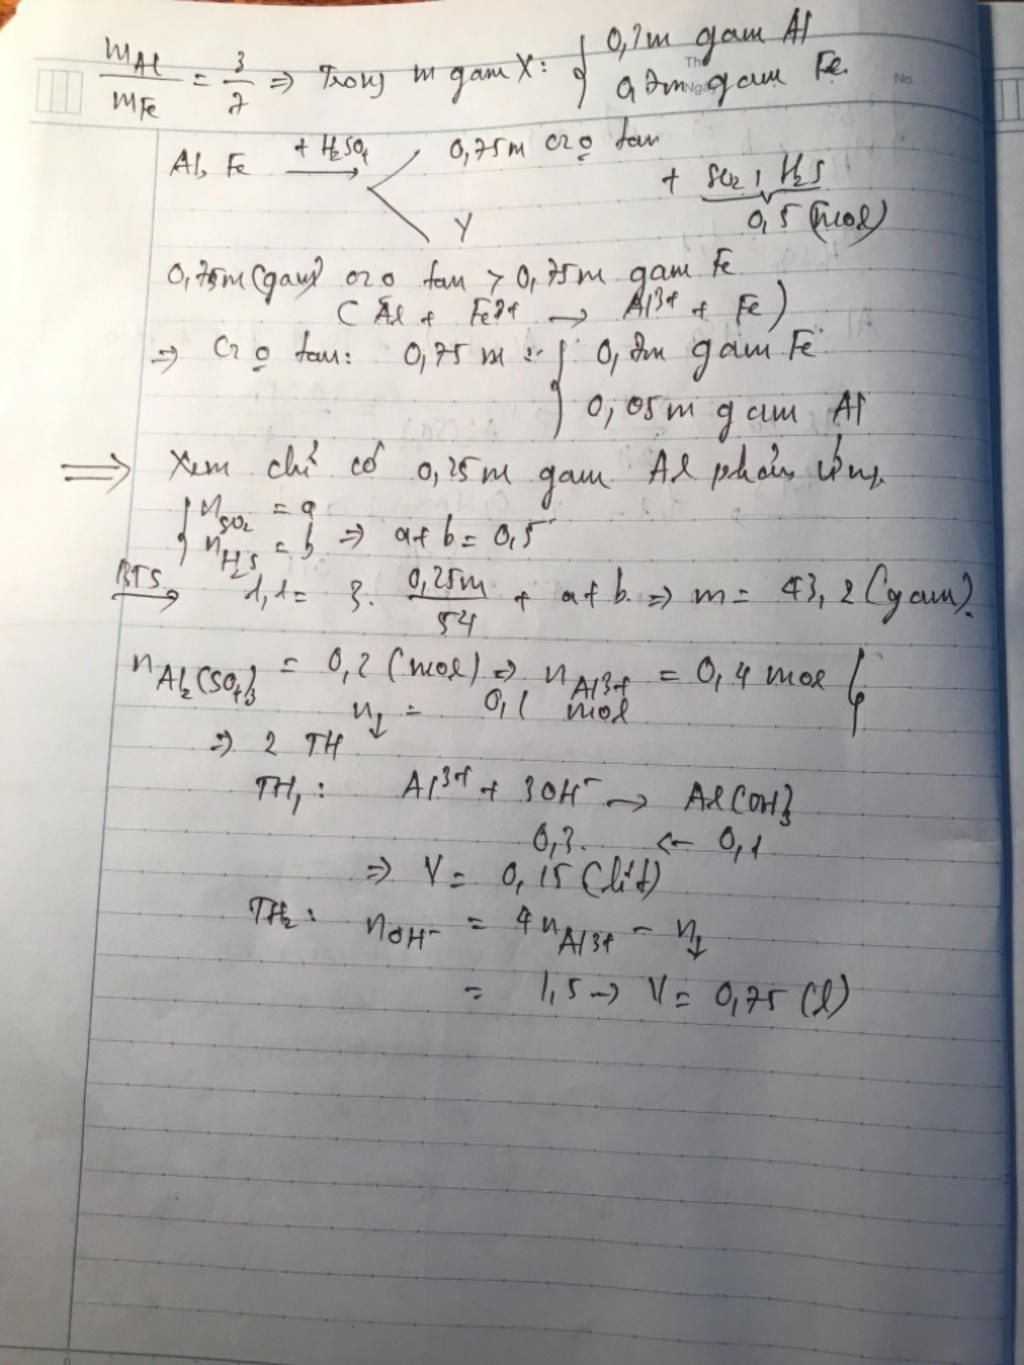 mAl/mFe = 3/7 ⇒ Trong m gam X: { 0,3m gam Al
0,7m gam Fe.
No.
Al, Fe + H2SO4 → 0,75m cr o tan
+ SO2, H2S
0,5 (mol)
Y
0,75m (gam) cr o tan > 0,75m gam Fe
(Al + Fe2+ → Al3+ + Fe)
⇒ Cr o tan: 0,75 m : { 0,7m gam Fe
0,05m gam Al
⇒ Xem chỉ có 0,25m gam Al phản ứng.
{ nSO2 = a
nH2S = b ⇒ a + b = 0,5
BTS → 1,1 = 3. 0,25m/54 + a + b. ⇒ m = 43,2 (gam).
nAl2(SO4)3 = 0,2 (mol) ⇒ nAl3+ = 0,4 mol
n↓ = 0,1 mol
⇒ 2 TH
TH1: Al3+ + 3OH- → Al(OH)3
0,3. ← 0,1
⇒ V = 0,15 (lít)
TH2: nOH- = 4nAl3+ - n↓
= 1,5 → V = 0,75 (l)